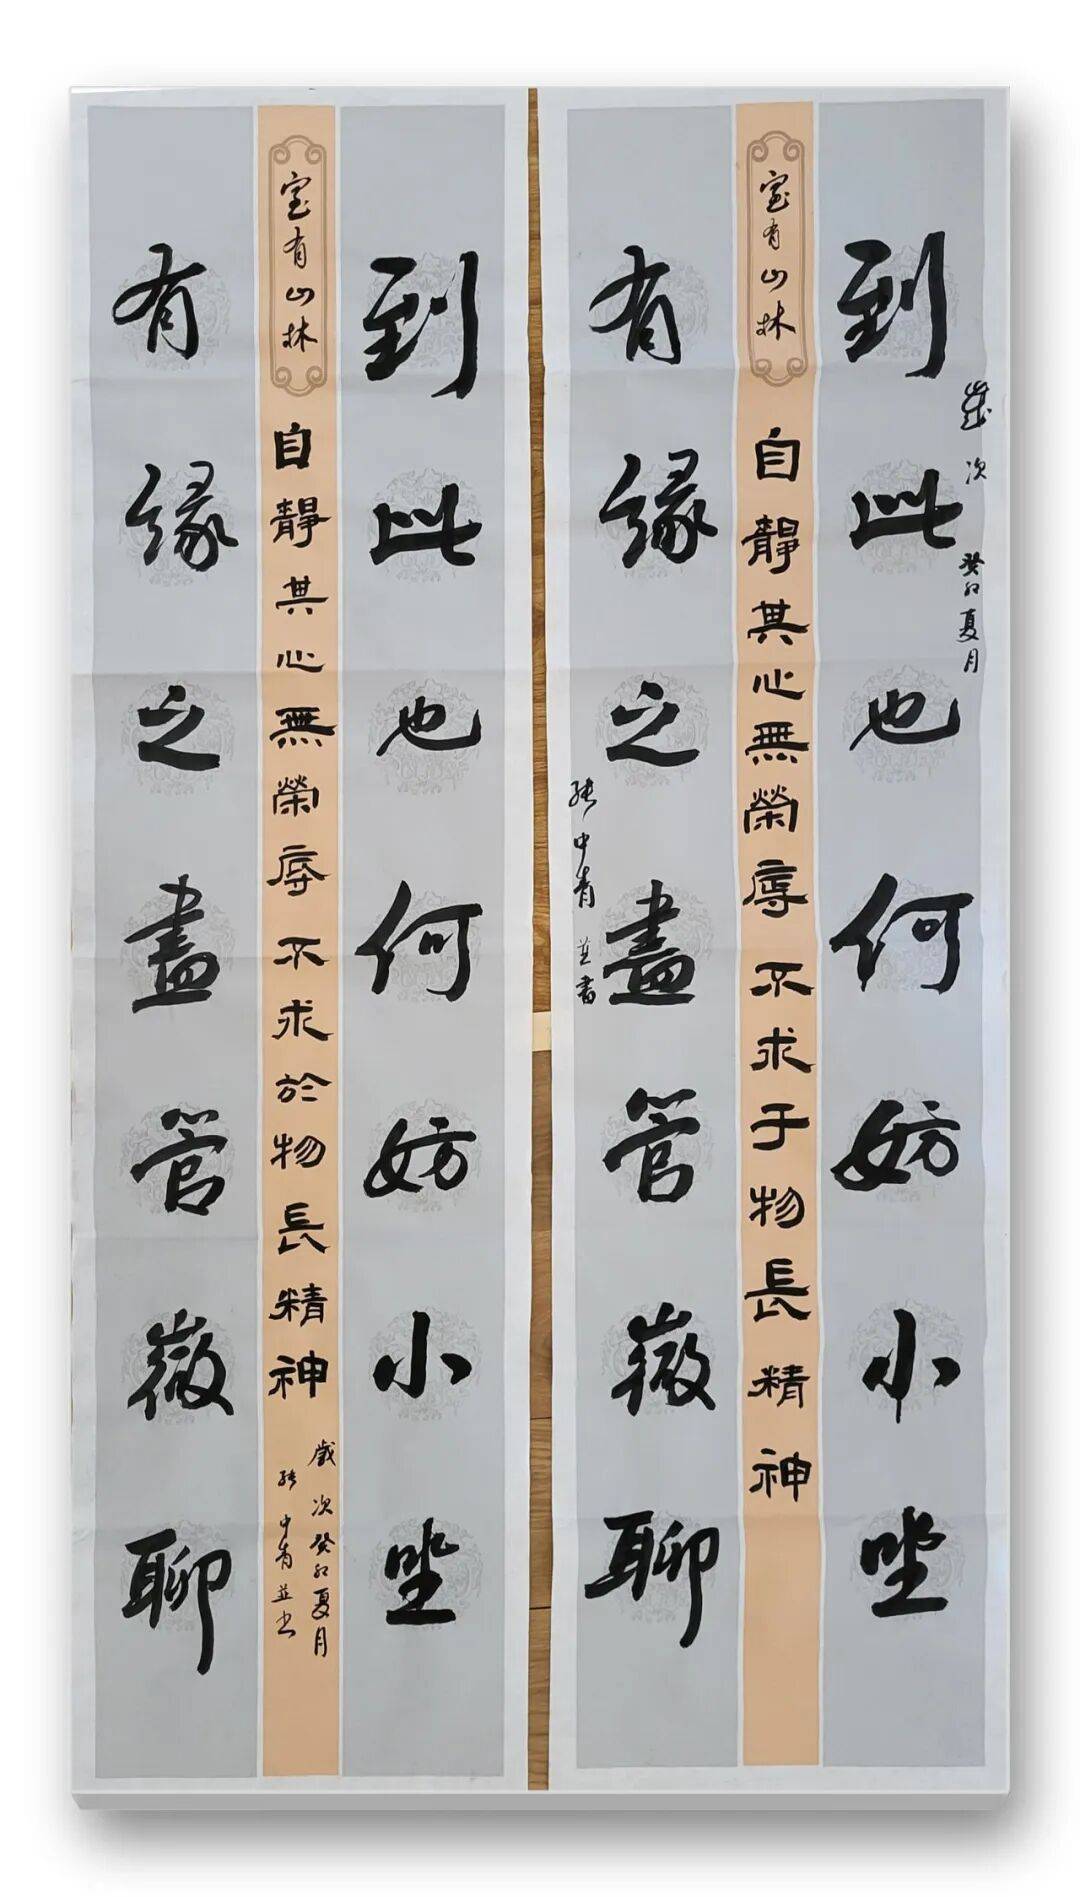 到此也何妨小坐
歲次癸卯夏月
室有山林
自靜其心無榮辱不求于物長精神
有緣之盡管微聊
張中青並書
到此也何妨小坐
室有山林
自靜其心無榮辱不求於物長精神
歲次癸卯夏月
張中青並书
有緣之盡管微聊